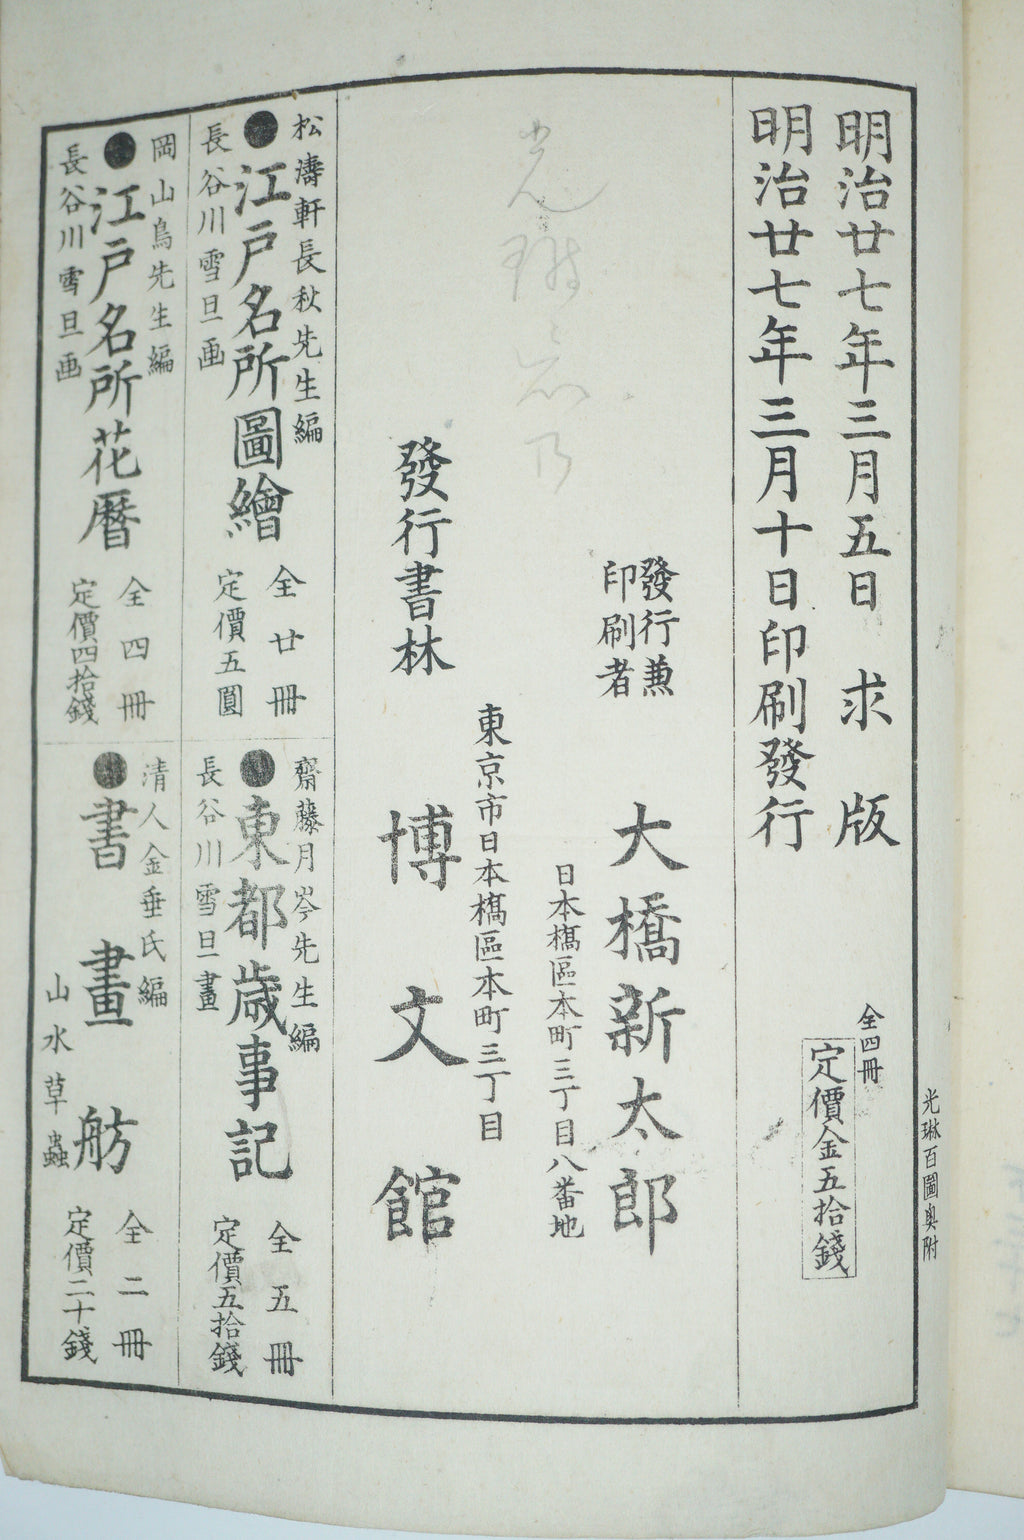 光琳百圖奥附
明治廿七年三月五日 求版
明治廿七年三月十日印刷發行
全四冊
定價金五拾錢
發行兼
印刷者
大橋新太郎
日本橋區本町三丁目八番地
東京市日本橋區本町三丁目
發行書林 博文館
松濤軒長秋先生編
●江戸名所圖繪
長谷川雪旦画
全廿冊
定價五圓
岡山鳥先生編
●江戸名所花暦
長谷川雪旦画
全四冊
定價四拾錢
齋藤月岑先生編
●東都歳事記
長谷川雪旦畫
全五冊
定價五拾錢
清人金垂氏編
●書畫舫
山水草蟲
全二冊
定價二十錢